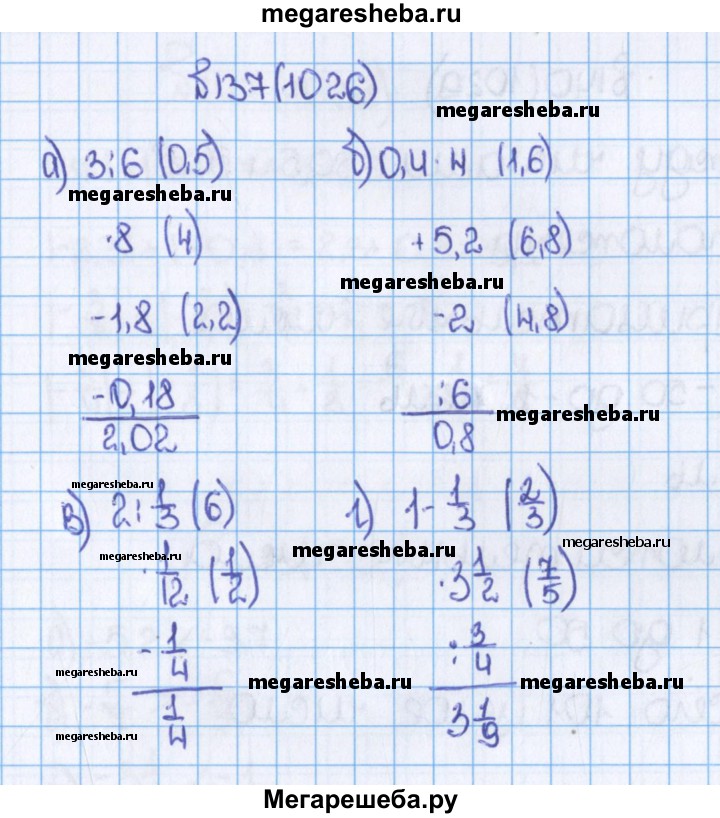 megaresheba.ru
В137(1026)
megaresheba.ru
а) 3:6 (0,5) б) 0,4·4 (1,6)
megaresheba.ru
·8 (4) +5,2 (6,8)
megaresheba.ru
-1,8 (2,2) -2 (4,8)
megaresheba.ru
-0,18 :6
megaresheba.ru
2,02 0,8
megaresheba.ru
в) 2:1/3 (6) г) 1-1/3 (2/3)
megaresheba.ru megaresheba.ru megaresheba.ru
·1/12 (1/2) ·3 1/2 (7/5)
-1/4 :3/4
megaresheba.ru megaresheba.ru megaresheba.ru
1/4 3 1/9
megaresheba.ru
Мегарешеба.ру